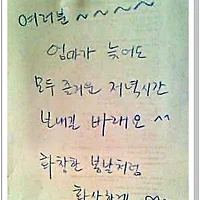 여러분~~~~
엄마가 늦어도
모두 즐거운 저녁시간
보내길 바래요 ^^
화창한 봄날처럼